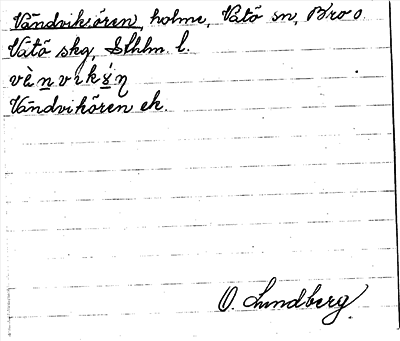 Vändviksören, holme, Vätö sn, Bro o.
Vätö skg, Sthlm l.
Vändvikören ek.
O. Lundberg